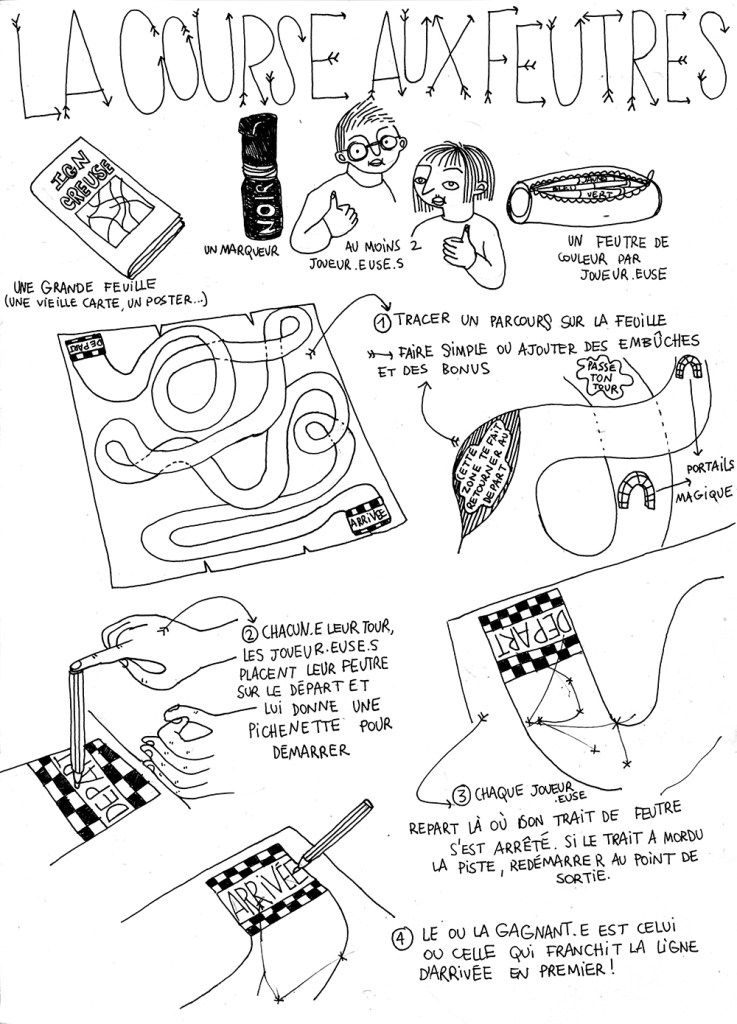 LA COURSE AUX FEUTRES
IGN
CREUSE
NOIR
JAUNE
BLEU
VERT
UN MARQUEUR
AU MOINS 2
JOUEUR.EUSE.S
UN FEUTRE DE
COULEUR PAR
JOUEUR.EUSE
UNE GRANDE FEUILLE
(UNE VIEILLE CARTE, UN POSTER...)
DEPART
ARRIVÉE
① TRACER UN PARCOURS SUR LA FEUILLE
FAIRE SIMPLE OU AJOUTER DES EMBÛCHES
ET DES BONUS
PASSE
TON
TOUR
CETTE
ZONE TE FAIT
RETOURNER AU
DEPART
PORTAILS
MAGIQUE
② CHACUN.E LEUR TOUR,
LES JOUEUR.EUSE.S
PLACENT LEUR FEUTRE
SUR LE DÉPART ET
LUI DONNE UNE
PICHENETTE POUR
DÉMARRER
DEPART
DEPART
③ CHAQUE JOUEUR
.EUSE
REPART LÀ OÙ SON TRAIT DE FEUTRE
S'EST ARRÊTÉ. SI LE TRAIT A MORDU
LA PISTE, REDÉMARRER AU POINT DE
SORTIE.
ARRIVÉE
④ LE OU LA GAGNANT.E EST CELUI
OU CELLE QUI FRANCHIT LA LIGNE
D'ARRIVÉE EN PREMIER !